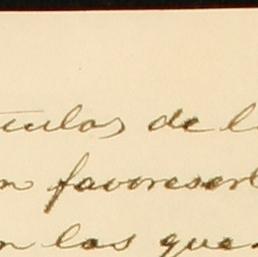 culos de l
n favoreser
n las que